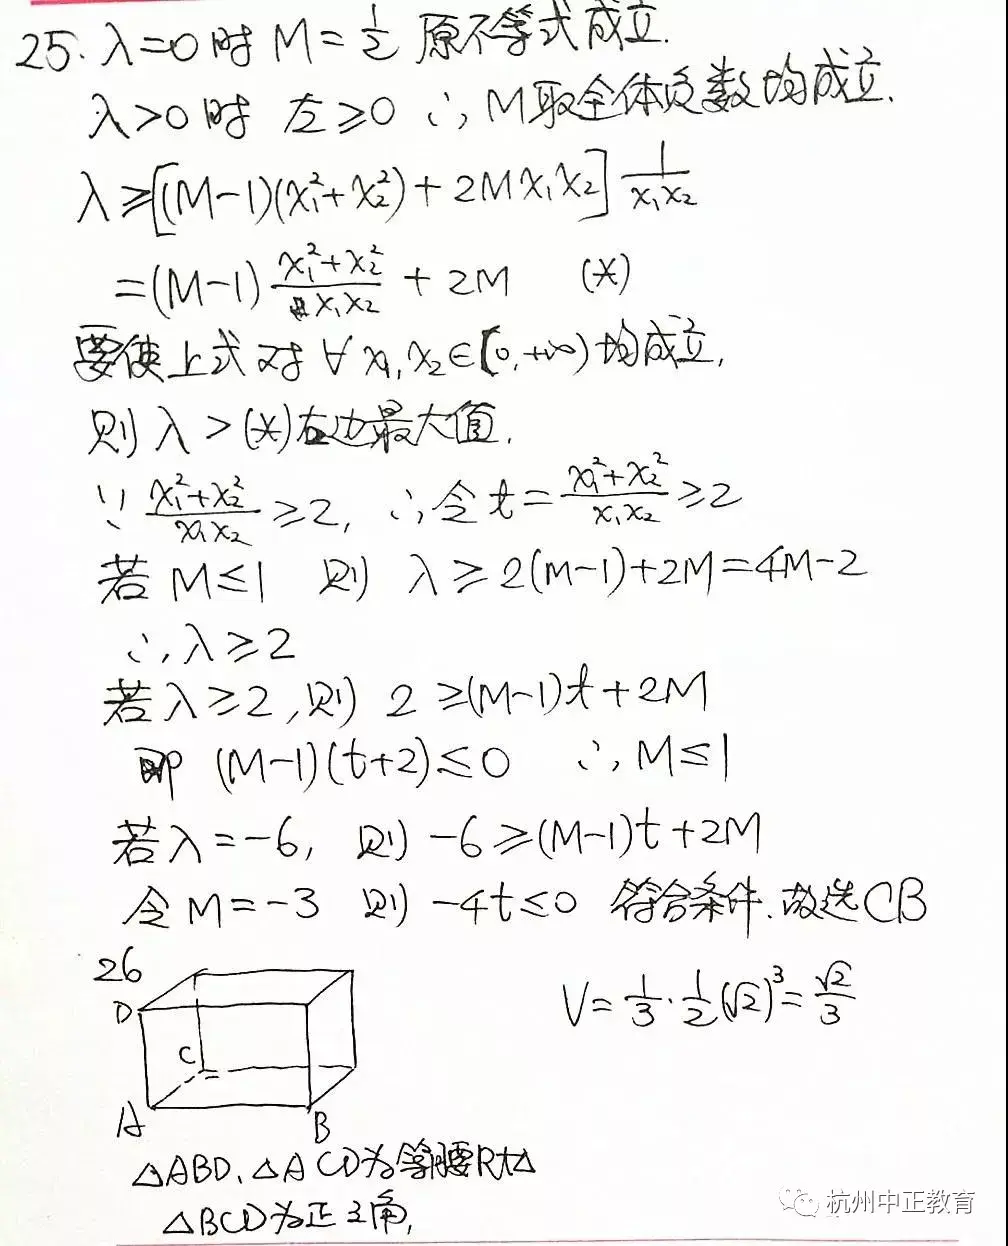 25. λ=0时 M=1/2 原不等式成立.
λ>0时 左≥0 ∴M取全体负数均成立.
λ≥[(M-1)(x₁²+x₂²)+2Mx₁x₂] 1/(x₁x₂)
=(M-1) (x₁²+x₂²)/(x₁x₂) + 2M (*)
要使上式对∀x₁,x₂∈[0,+∞)均成立,
则λ>(*)右边最大值.
∵ (x₁²+x₂²)/(x₁x₂) ≥2, ∴令t= (x₁²+x₂²)/(x₁x₂) ≥2
若M≤1 则 λ≥2(M-1)+2M=4M-2
∴λ≥2
若λ≥2,则 2≥(M-1)t+2M
即 (M-1)(t+2)≤0 ∴M≤1
若λ=-6, 则 -6≥(M-1)t+2M
令M=-3 则 -4t≤0 符合条件.故选CB
26
V= 1/3 · 1/2 (√2)³ = √2/3
D
C
A
B
△ABD、△ACD为等腰Rt△
△BCD为正三角,
杭州中正教育